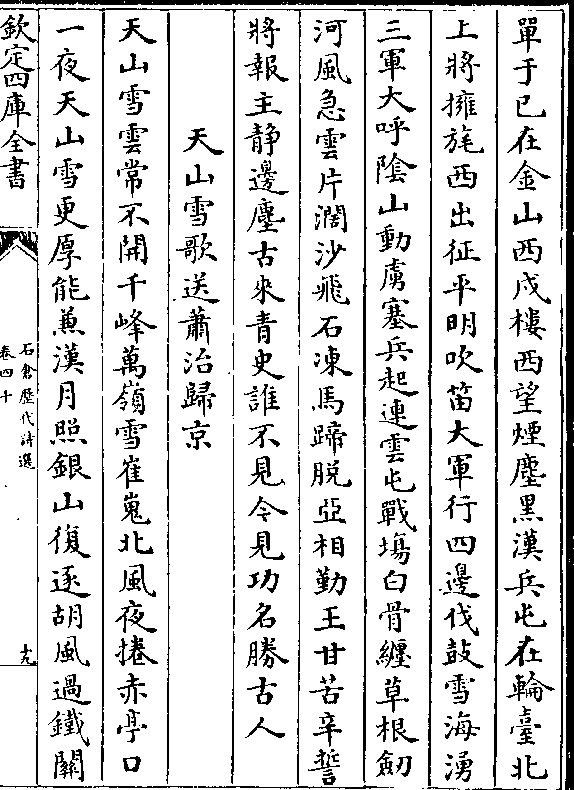 單于已在金山西戍樓西望煙塵黑漢兵屯在輪臺北
上將擁旄西出征平明吹笛大軍行四邊伐鼓雪海湧
三軍大呼陰山動虜塞兵起連雲屯戰塲白骨纏草根劒
河風急雲片濶沙飛石凍馬蹄脱亞相勤王甘苦辛誓
將報主静邊塵古來青史誰不見今見功名勝古人
天山雪歌送蕭治歸京
天山雪雲常不開千峰萬嶺雪崔嵬北風夜捲赤亭口
一夜天山雪更厚能兼漢月照銀山復逐胡風過鐵關
欽定四庫全書
石倉歷代詩選
卷四十
十九